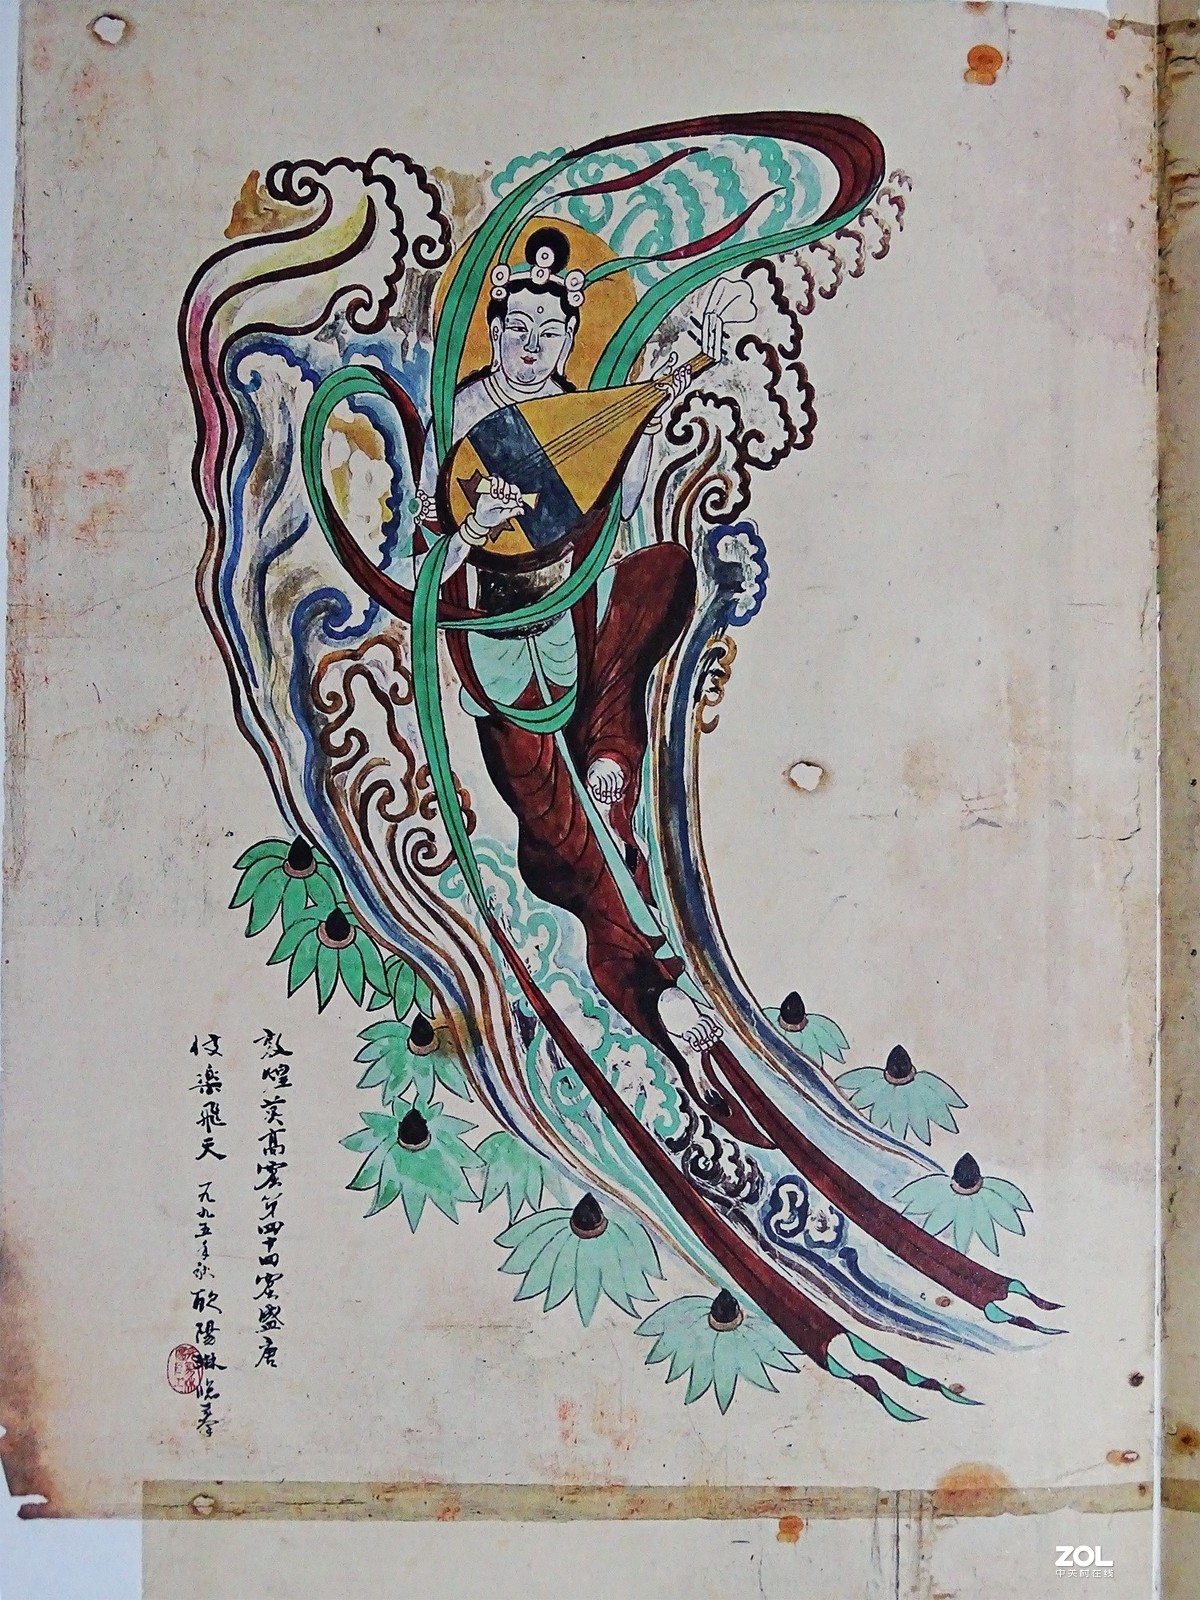 敦煌莫高窟第四十四窟盛唐
伎楽飛天 一九九五年秋 欧陽琳临摹
ZOL
中关村在线